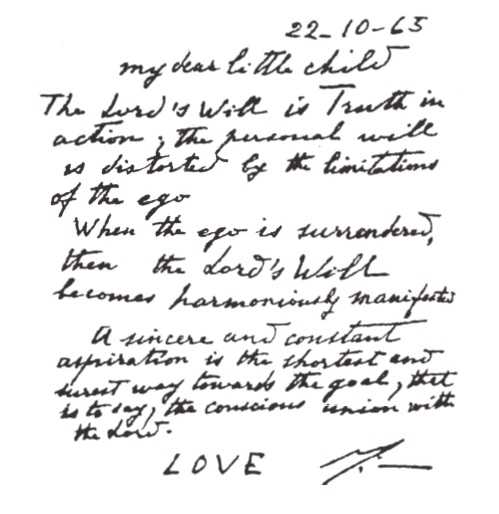 22-10-65
my dear little child
The Lord's Will is Truth in
action; the personal will
is distorted by the limitations
of the ego
When the ego is surrendered,
then the Lord's Will
becomes harmoniously manifested
A sincere and constant
aspiration is the shortest and
surest way towards the goal, that
is to say, the conscious union with
the Lord.
LOVE